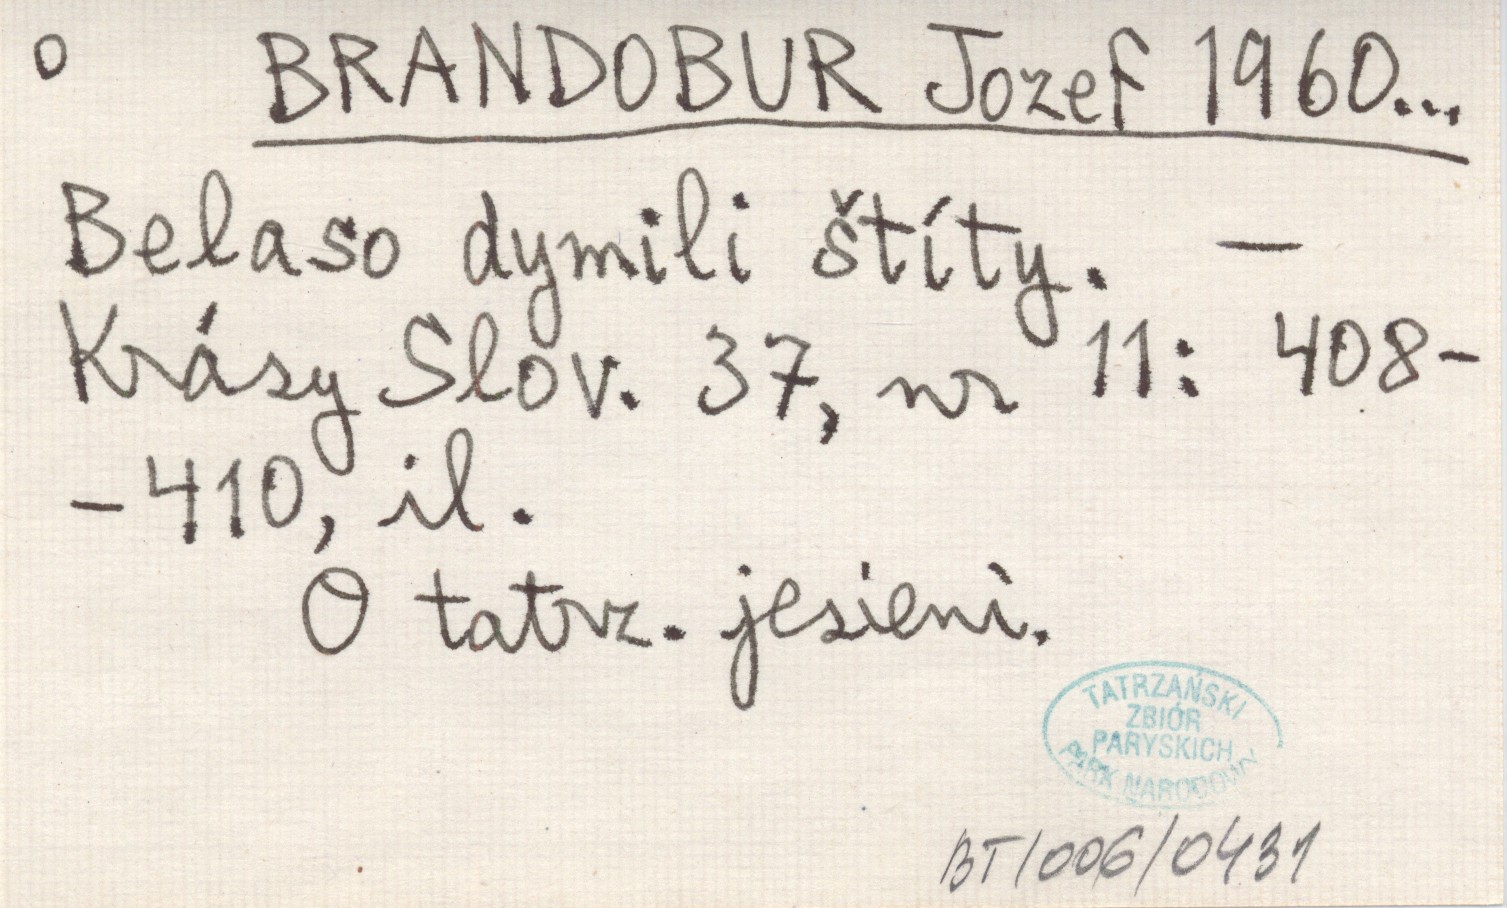 o BRANDOBUR Jozef 1960...
Belaso dymili štíty. –
Krásy Slov. 37, nr 11: 408-
-410, il.
O tatrz. jesieni.
TATRZAŃSKI
ZBIÓR
PARYSKICH
PARK NARODOWY
BT/006/0431